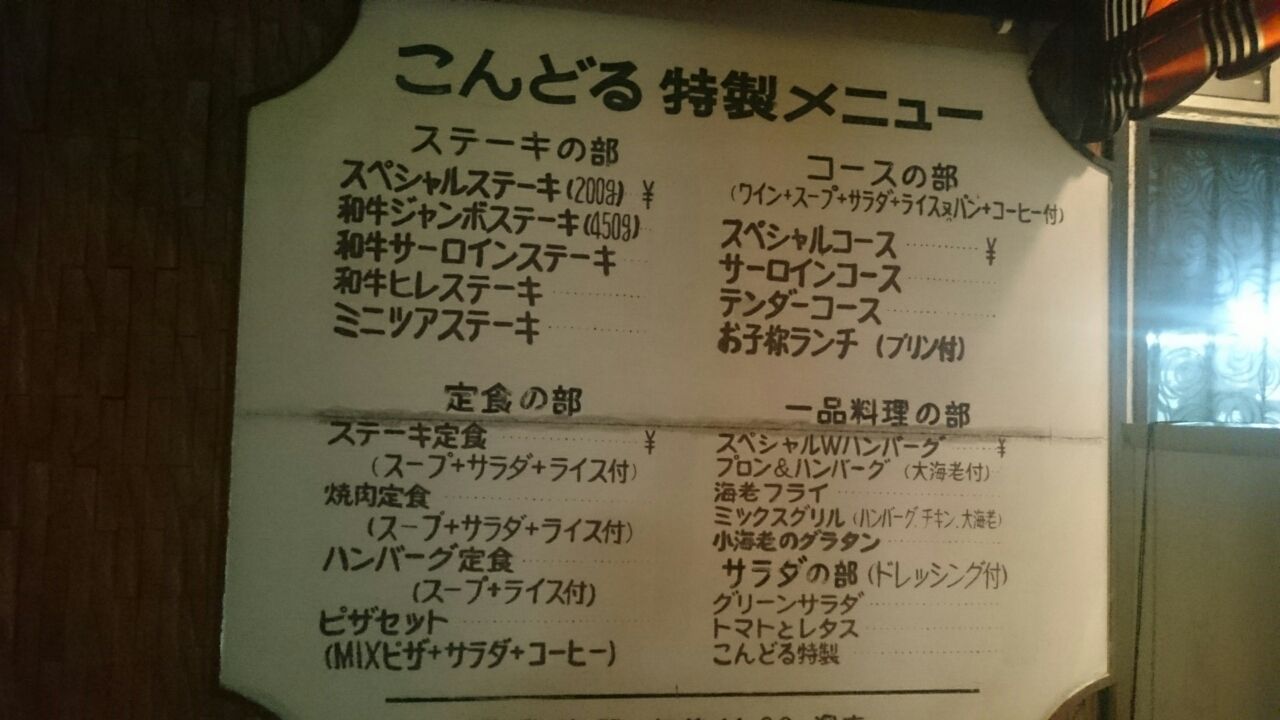 こんどる 特製メニュー
ステーキの部
スペシャルステーキ(200g) ¥
和牛ジャンボステーキ(450g)
和牛サーロインステーキ
和牛ヒレステーキ
ミニツアステーキ
コースの部
(ワイン+スープ+サラダ+ライス又はパン+コーヒー付)
スペシャルコース ¥
サーロインコース
テンダーコース
お子様ランチ (プリン付)
定食の部
ステーキ定食 ¥
(スープ+サラダ+ライス付)
焼肉定食
(スープ+サラダ+ライス付)
ハンバーグ定食
(スープ+ライス付)
ピザセット
(MIXピザ+サラダ+コーヒー)
一品料理の部
スペシャルWハンバーグ ¥
プロン&ハンバーグ (大海老付)
海老フライ
ミックスグリル (ハンバーグ、チキン、大海老)
小海老のグラタン
サラダの部 (ドレッシング付)
グリーンサラダ
トマトとレタス
こんどる特製